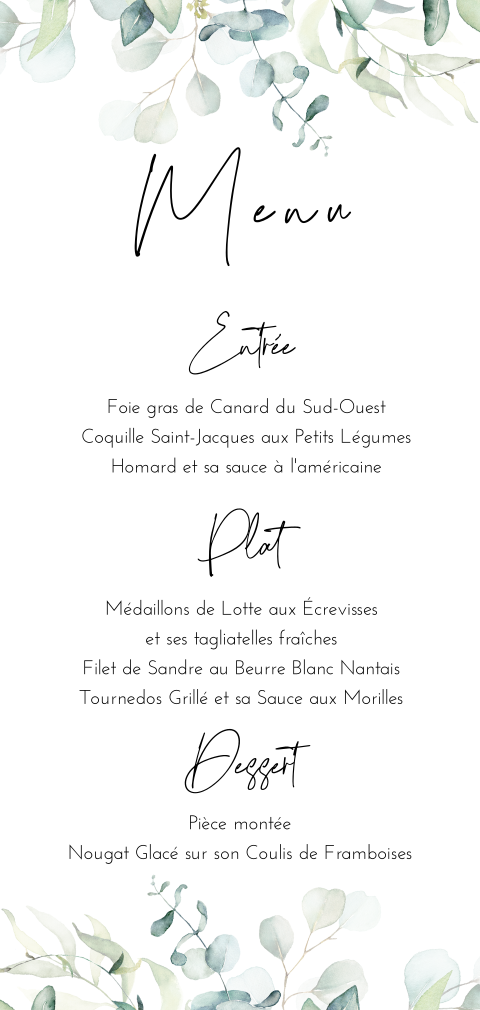 Menu
Entrée
Foie gras de Canard du Sud-Ouest
Coquille Saint-Jacques aux Petits Légumes
Homard et sa sauce à l'américaine
Plat
Médaillons de Lotte aux Écrevisses
et ses tagliatelles fraîches
Filet de Sandre au Beurre Blanc Nantais
Tournedos Grillé et sa Sauce aux Morilles
Dessert
Pièce montée
Nougat Glacé sur son Coulis de Framboises